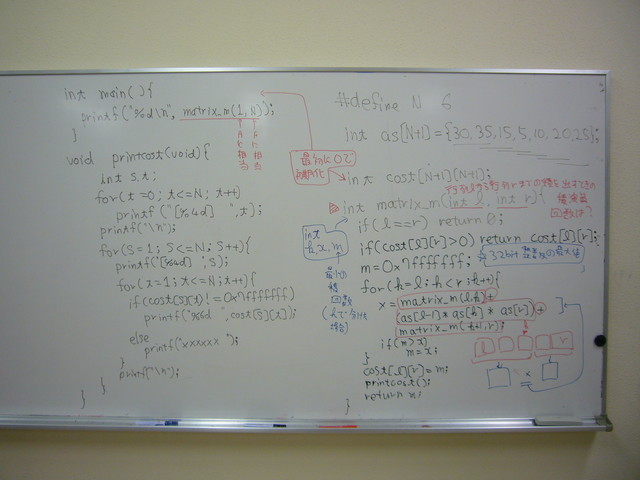 int main(){
printf("%d\n", matrix_m(1,N));
}
void printcost(void){
int s,t;
for(t=0; t<=N; t++)
printf("[%4d] ",t);
printf("\n");
for(s=1; s<=N; s++){
printf("[%4d]",s);
for(t=1; t<=N; t++){
if(cost[s][t]!=0x7fffffff)
printf("%6d ",cost[s][t]);
else
printf("xxxxxx ");
}
printf("\n");
}
}
最初に0で
初期化
#define N 6
int as[N+1]={30,35,15,5,10,20,25};
int cost[N+1][N+1];
int matrix_m(int l, int r){
if(l==r) return 0;
if(cost[l][r]>0) return cost[l][r];
m=0x7fffffff;
for(k=l;k<r;k++){
x=matrix_m(l,k)+
as[l-1]*as[k]*as[r]+
matrix_m(k+1,r);
if(m>x)
m=x;
}
cost[l][r]=m;
printcost();
return m;
}
int
k,x,m
回数
(kで分けた
場合)
l r